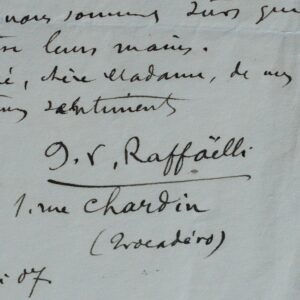 nous sommes sûrs que
leurs mains.
chère Madame, de mes
sentiments
J. F. Raffaëlli
1. rue Chardin
(Trocadéro)
07